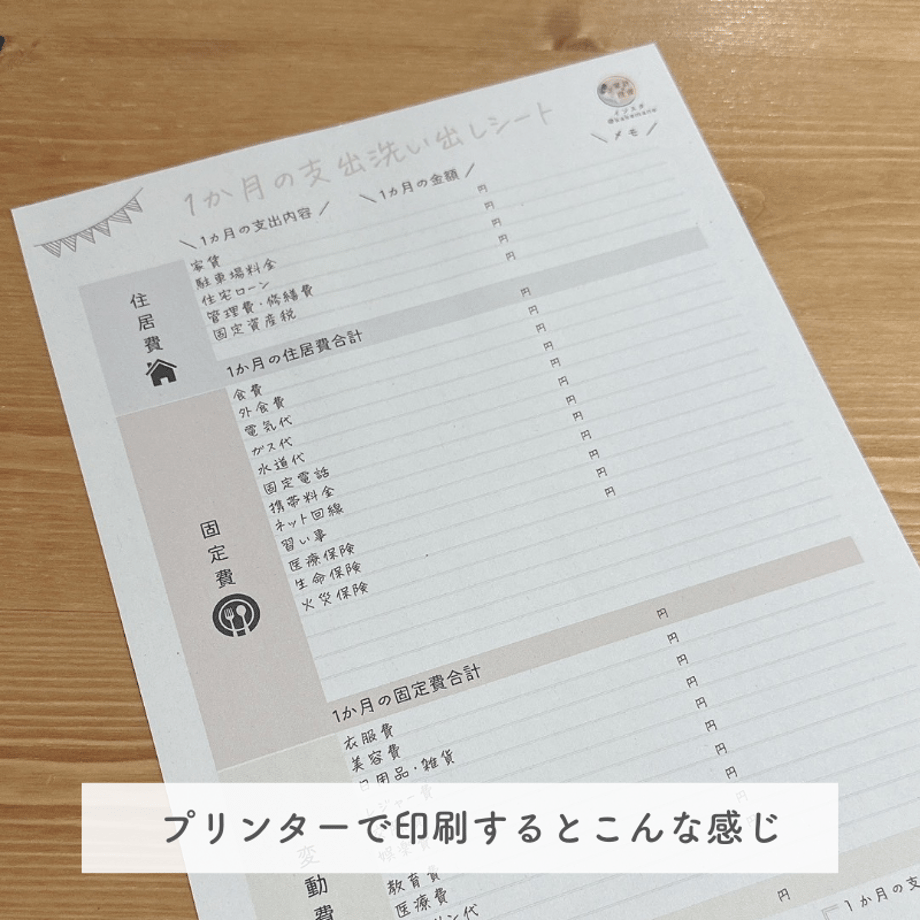 1か月の支出洗い出しシート
メモ
1ヵ月の支出内容
1ヵ月の金額
住居費
家賃 円
駐車場料金 円
住宅ローン 円
管理費・修繕費 円
固定資産税 円
1か月の住居費合計 円
固定費
食費 円
外食費 円
電気代 円
ガス代 円
水道代 円
固定電話 円
携帯料金 円
ネット回線 円
習い事 円
医療保険 円
生命保険 円
火災保険
1か月の固定費合計 円
変動費
衣服費 円
美容費 円
日用品・雑貨 円
教育費
医療費
プリンターで印刷するとこんな感じ
1か月の支